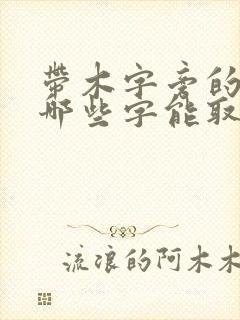 带木字旁的
哪些字能取
流浪的阿木木